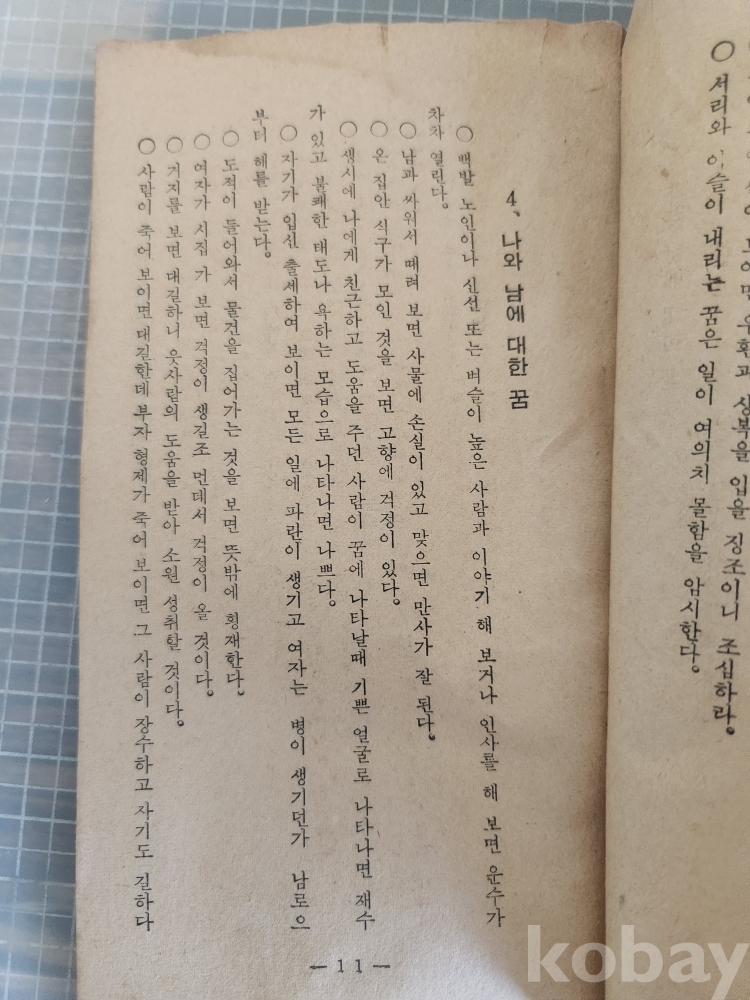 상복을 입을 징조이니 조심하라。
○ 서리와 이슬이 내리는 꿈은 일이 여의치 몰함을 암시한다。
4、 나와 남에 대한 꿈
○ 백발 노인이나 신선 또는 벼슬이 높은 사람과 이야기 해 보거나 인사를 해 보면 운수가
차차 열린다。
○ 남과 싸워서 때려 보면 사물에 손실이 있고 맞으면 만사가 잘 된다。
○ 온 집안 식구가 모인 것을 보면 고향에 걱정이 있다。
○ 생시에 나에게 친근하고 도움을 주던 사람이 꿈에 나타날때 기쁜 얼굴로 나타나면 재수
가 있고 불쾌한 태도나 욕하는 모습으로 나타나면 나쁘다。
○ 자기가 입신 출세하여 보이면 모든 일에 파란이 생기고 여자는 병이 생기던가 남로으
부터 해를 받는다。
○ 도적이 들어와서 물건을 집어가는 것을 보면 뜻밖에 횡재한다。
○ 여자가 시집 가 보면 걱정이 생길조 먼데서 걱정이 올 것이다。
○ 거지를 보면 대길하니 웃사람의 도움을 받아 소원 성취할 것이다。
○ 사람이 죽어 보이면 대길한데 부자 형제가 죽어 보이면 그 사람이 장수하고 자기도 길하다
— 11 —
kobay